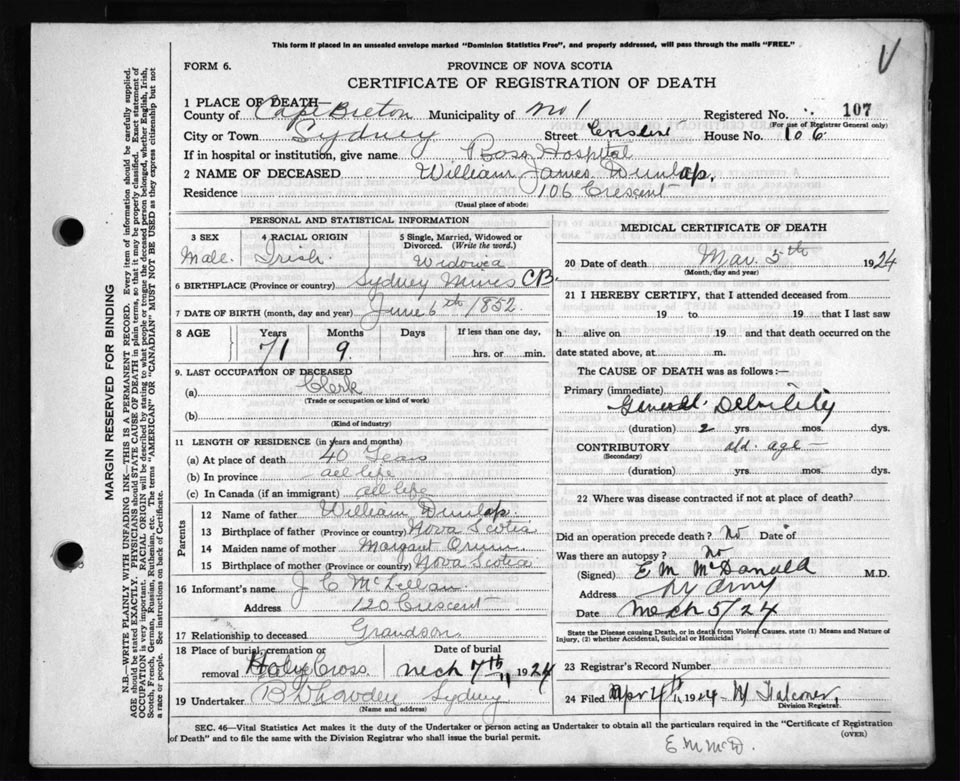 This form if placed in an unsealed envelope marked "Dominion Statistics Free", and properly addressed, will pass through the mails "FREE."
V
FORM 6.
PROVINCE OF NOVA SCOTIA
CERTIFICATE OF REGISTRATION OF DEATH
1 PLACE OF DEATH
County of Cape Breton Municipality of No 1 Registered No. 107
(For use of Registrar General only)
City or Town Sydney Street Crescent House No. 106
If in hospital or institution, give name Ross Hospital
2 NAME OF DECEASED William James Dunlap.
Residence 106 Crescent
(Usual place of abode)
PERSONAL AND STATISTICAL INFORMATION
3 SEX 4 RACIAL ORIGIN 5 Single, Married, Widowed or Divorced. (Write the word.)
Male. Irish.
6 BIRTHPLACE (Province or country) Sydney Mines CB.
7 DATE OF BIRTH (month, day and year) June 6th 1852.
8 AGE Years Months Days If less than one day,
71 9. hrs. or min.
9. LAST OCCUPATION OF DECEASED
(a) Clerk
(Trade or occupation or kind of work)
(b)
(Kind of industry)
11 LENGTH OF RESIDENCE (in years and months)
(a) At place of death 40 Years
(b) In province all life
(c) In Canada (if an immigrant) all life
Parents
12 Name of father William Dunlap.
13 Birthplace of father (Province or country) Nova Scotia
14 Maiden name of mother Margaret
15 Birthplace of mother (Province or country) Nova Scotia
16 Informant's name J C McLellan
Address 120 Crescent
17 Relationship to deceased Grandson
18 Place of burial, cremation or removal Holy Cross. Date of burial Mch 7th, 1924
19 Undertaker Sydney
(Name and address)
MEDICAL CERTIFICATE OF DEATH
20 Date of death Mar. 5th 1924
(Month, day and year)
21 I HEREBY CERTIFY, that I attended deceased from
19 to 19 that I last saw
h alive on 19 and that death occurred on the
date stated above, at m.
The CAUSE OF DEATH was as follows:—
Primary (immediate)
General Debility
(duration) 2 yrs. mos. dys.
CONTRIBUTORY old age —
(Secondary)
(duration) yrs. mos. dys.
22 Where was disease contracted if not at place of death?
Did an operation precede death? No Date of
Was there an autopsy? No
(Signed) E M McDonald M.D.
Address
Date Mch 5/24
State the Disease causing Death, or in death from Violent Causes, state (1) Means and Nature of Injury, (2) whether Accidental, Suicidal or Homicidal
23 Registrar's Record Number
24 Filed Apr 4th, 1924 W Falconer
Division Registrar.
SEC. 46—Vital Statistics Act makes it the duty of the Undertaker or Person acting as Undertaker to obtain all the particulars required in the "Certificate of Registration
of Death" and to file the same with the Division Registrar who shall issue the burial permit.
(OVER)
E M McD.
MARGIN RESERVED FOR BINDING
N.B.—WRITE PLAINLY WITH UNFADING INK—THIS IS A PERMANENT RECORD. Every item of information should be carefully supplied.
AGE should be stated EXACTLY. PHYSICIANS should STATE CAUSE OF DEATH in plain terms, so that it may be properly classified. Exact statement of
OCCUPATION is very important. RACIAL ORIGIN will be described by stating to what people or tongue the deceased person belonged, whether English, Irish,
Scotch, French, German, Russian, Ruthenian, etc. The terms "AMERICAN" OR "CANADIAN" MUST NOT BE USED as they express citizenship but not
a race or people. See instructions on back of Certificate.